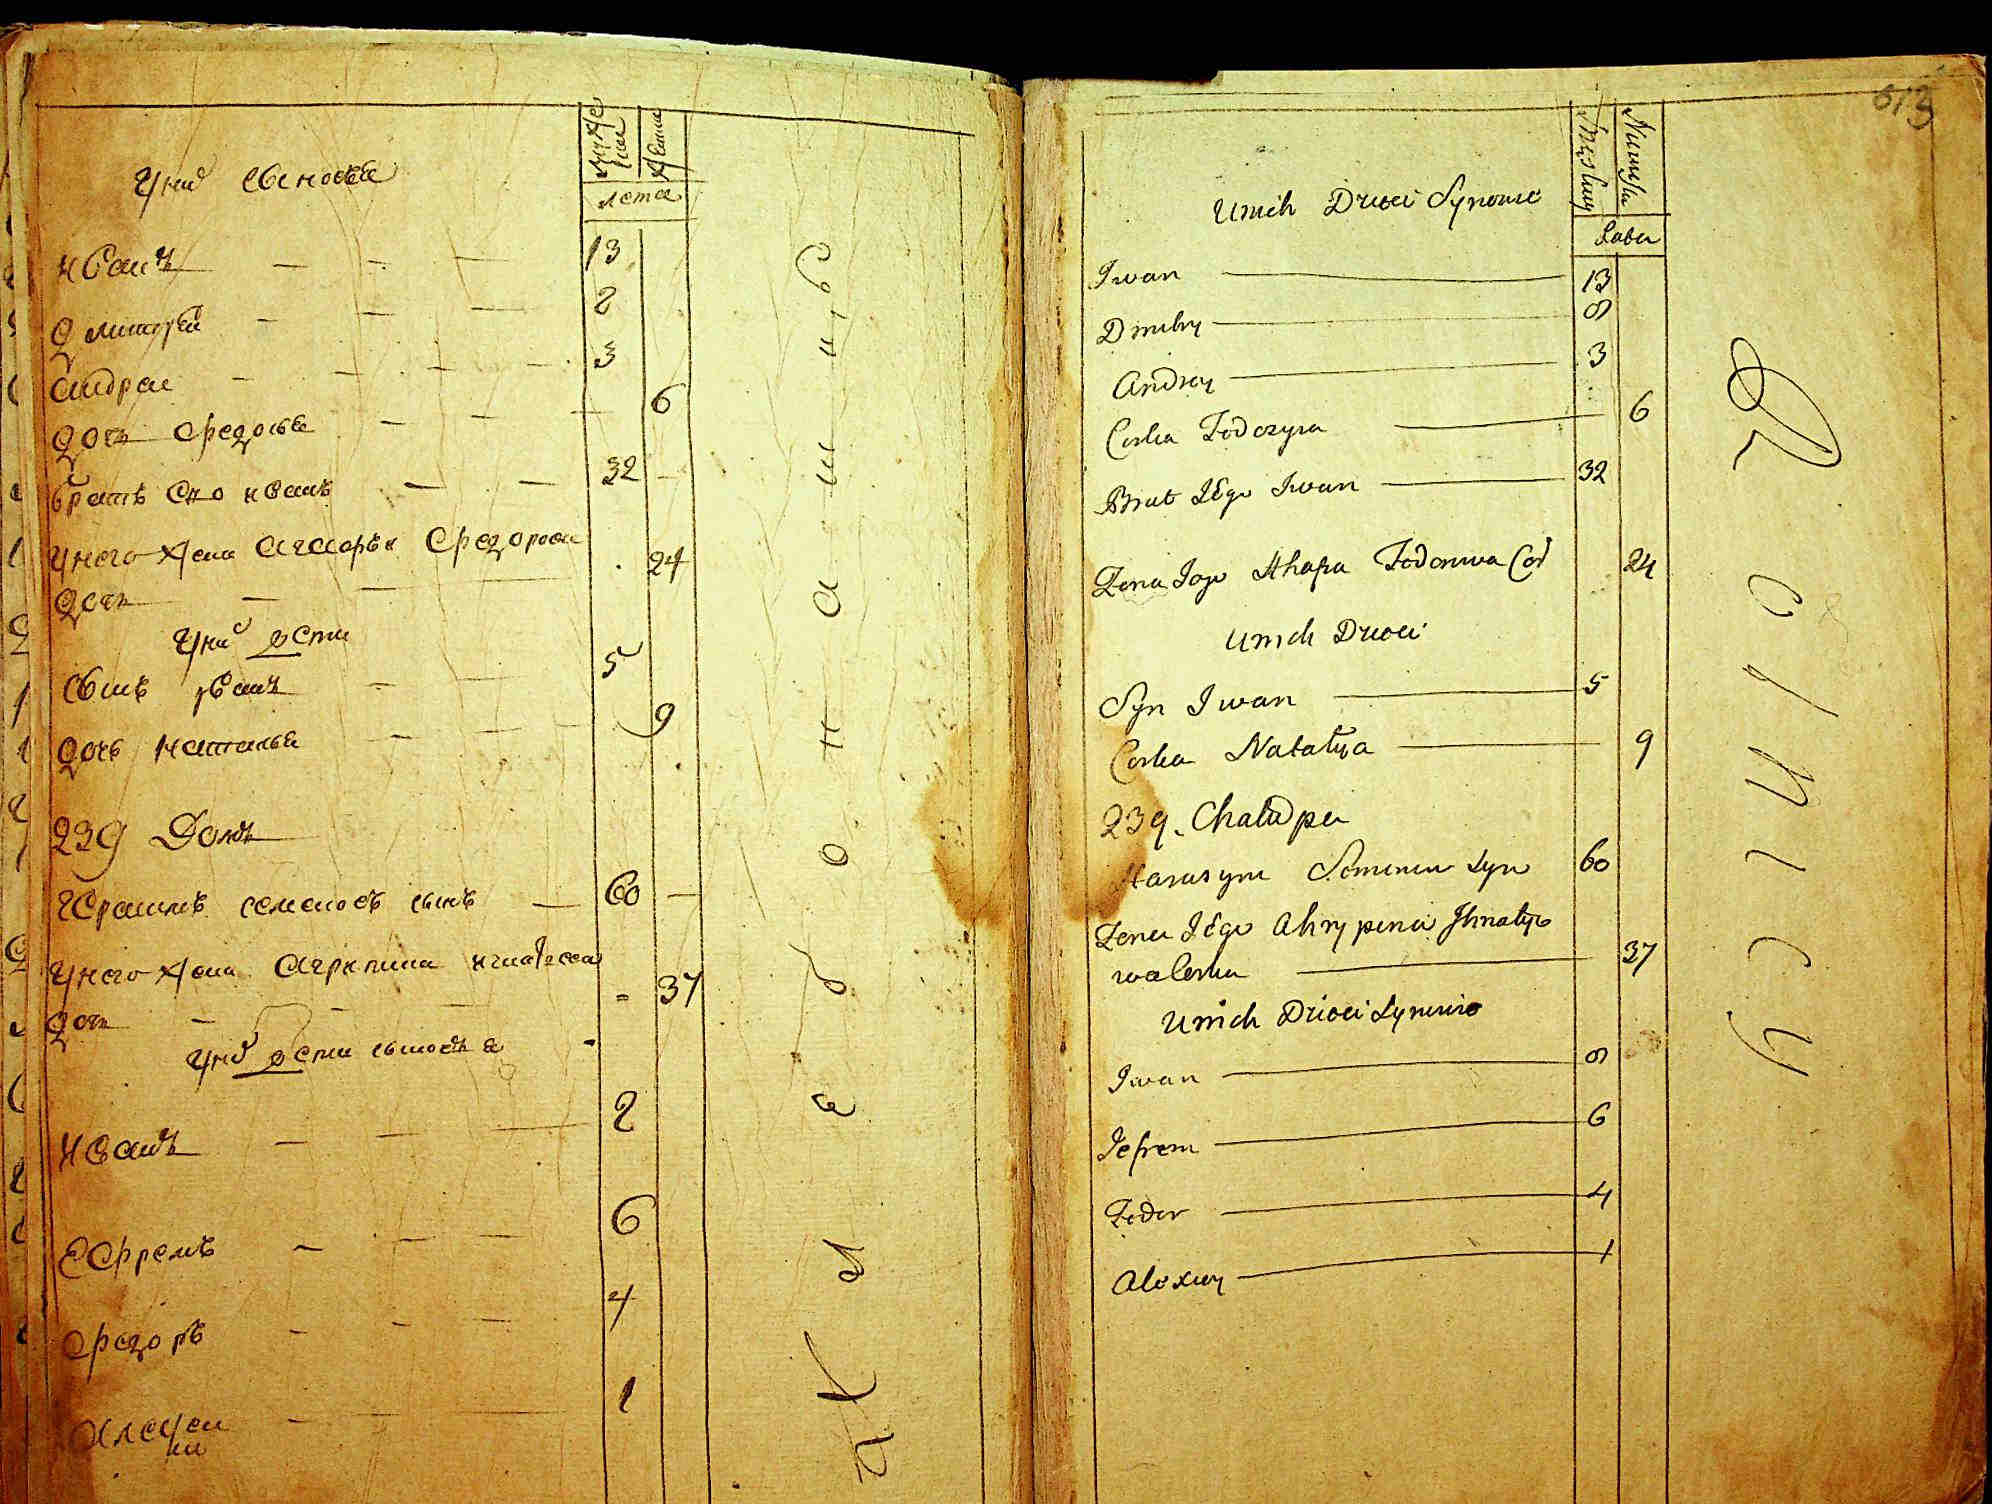 У нихъ сыновья
Мужска
Женска
лета
Иванъ 13
Дмитрей 8
Андреи 3
Дочь Федосья 6
Братъ Его Иванъ 32
У него жена Агафья Федорова 24
Дочь
У нихъ дети
Сынъ Иванъ 5
Дочь Наталья 9
239 Домъ
Герасимъ Семеновъ сынъ 60
У него жена Агрипина Игнатьева 37
Дочь
У нихъ дети сыновья
Иванъ 8
Ефремъ 6
Федоръ 4
Алексеи 1
613
Unich Dzieci Synowie
Męskiey
Niewies
Lata
Iwan 13
Dmitry 8
Andrey 3
Corka Fedozyia 6
Brat Iego Iwan 32
Zona Iego Ahafia Fedorowa Cor 24
Unich Dzieci
Syn Iwan 5
Corka Natalya 9
239. Chałupa
Harasym Semenow Syn 60
Zona Iego Ahrypina Ihnatye
wa Corka 37
Unich Dzieci Synowie
Iwan 8
Iefrem 6
Fedor 4
Alexiey 1